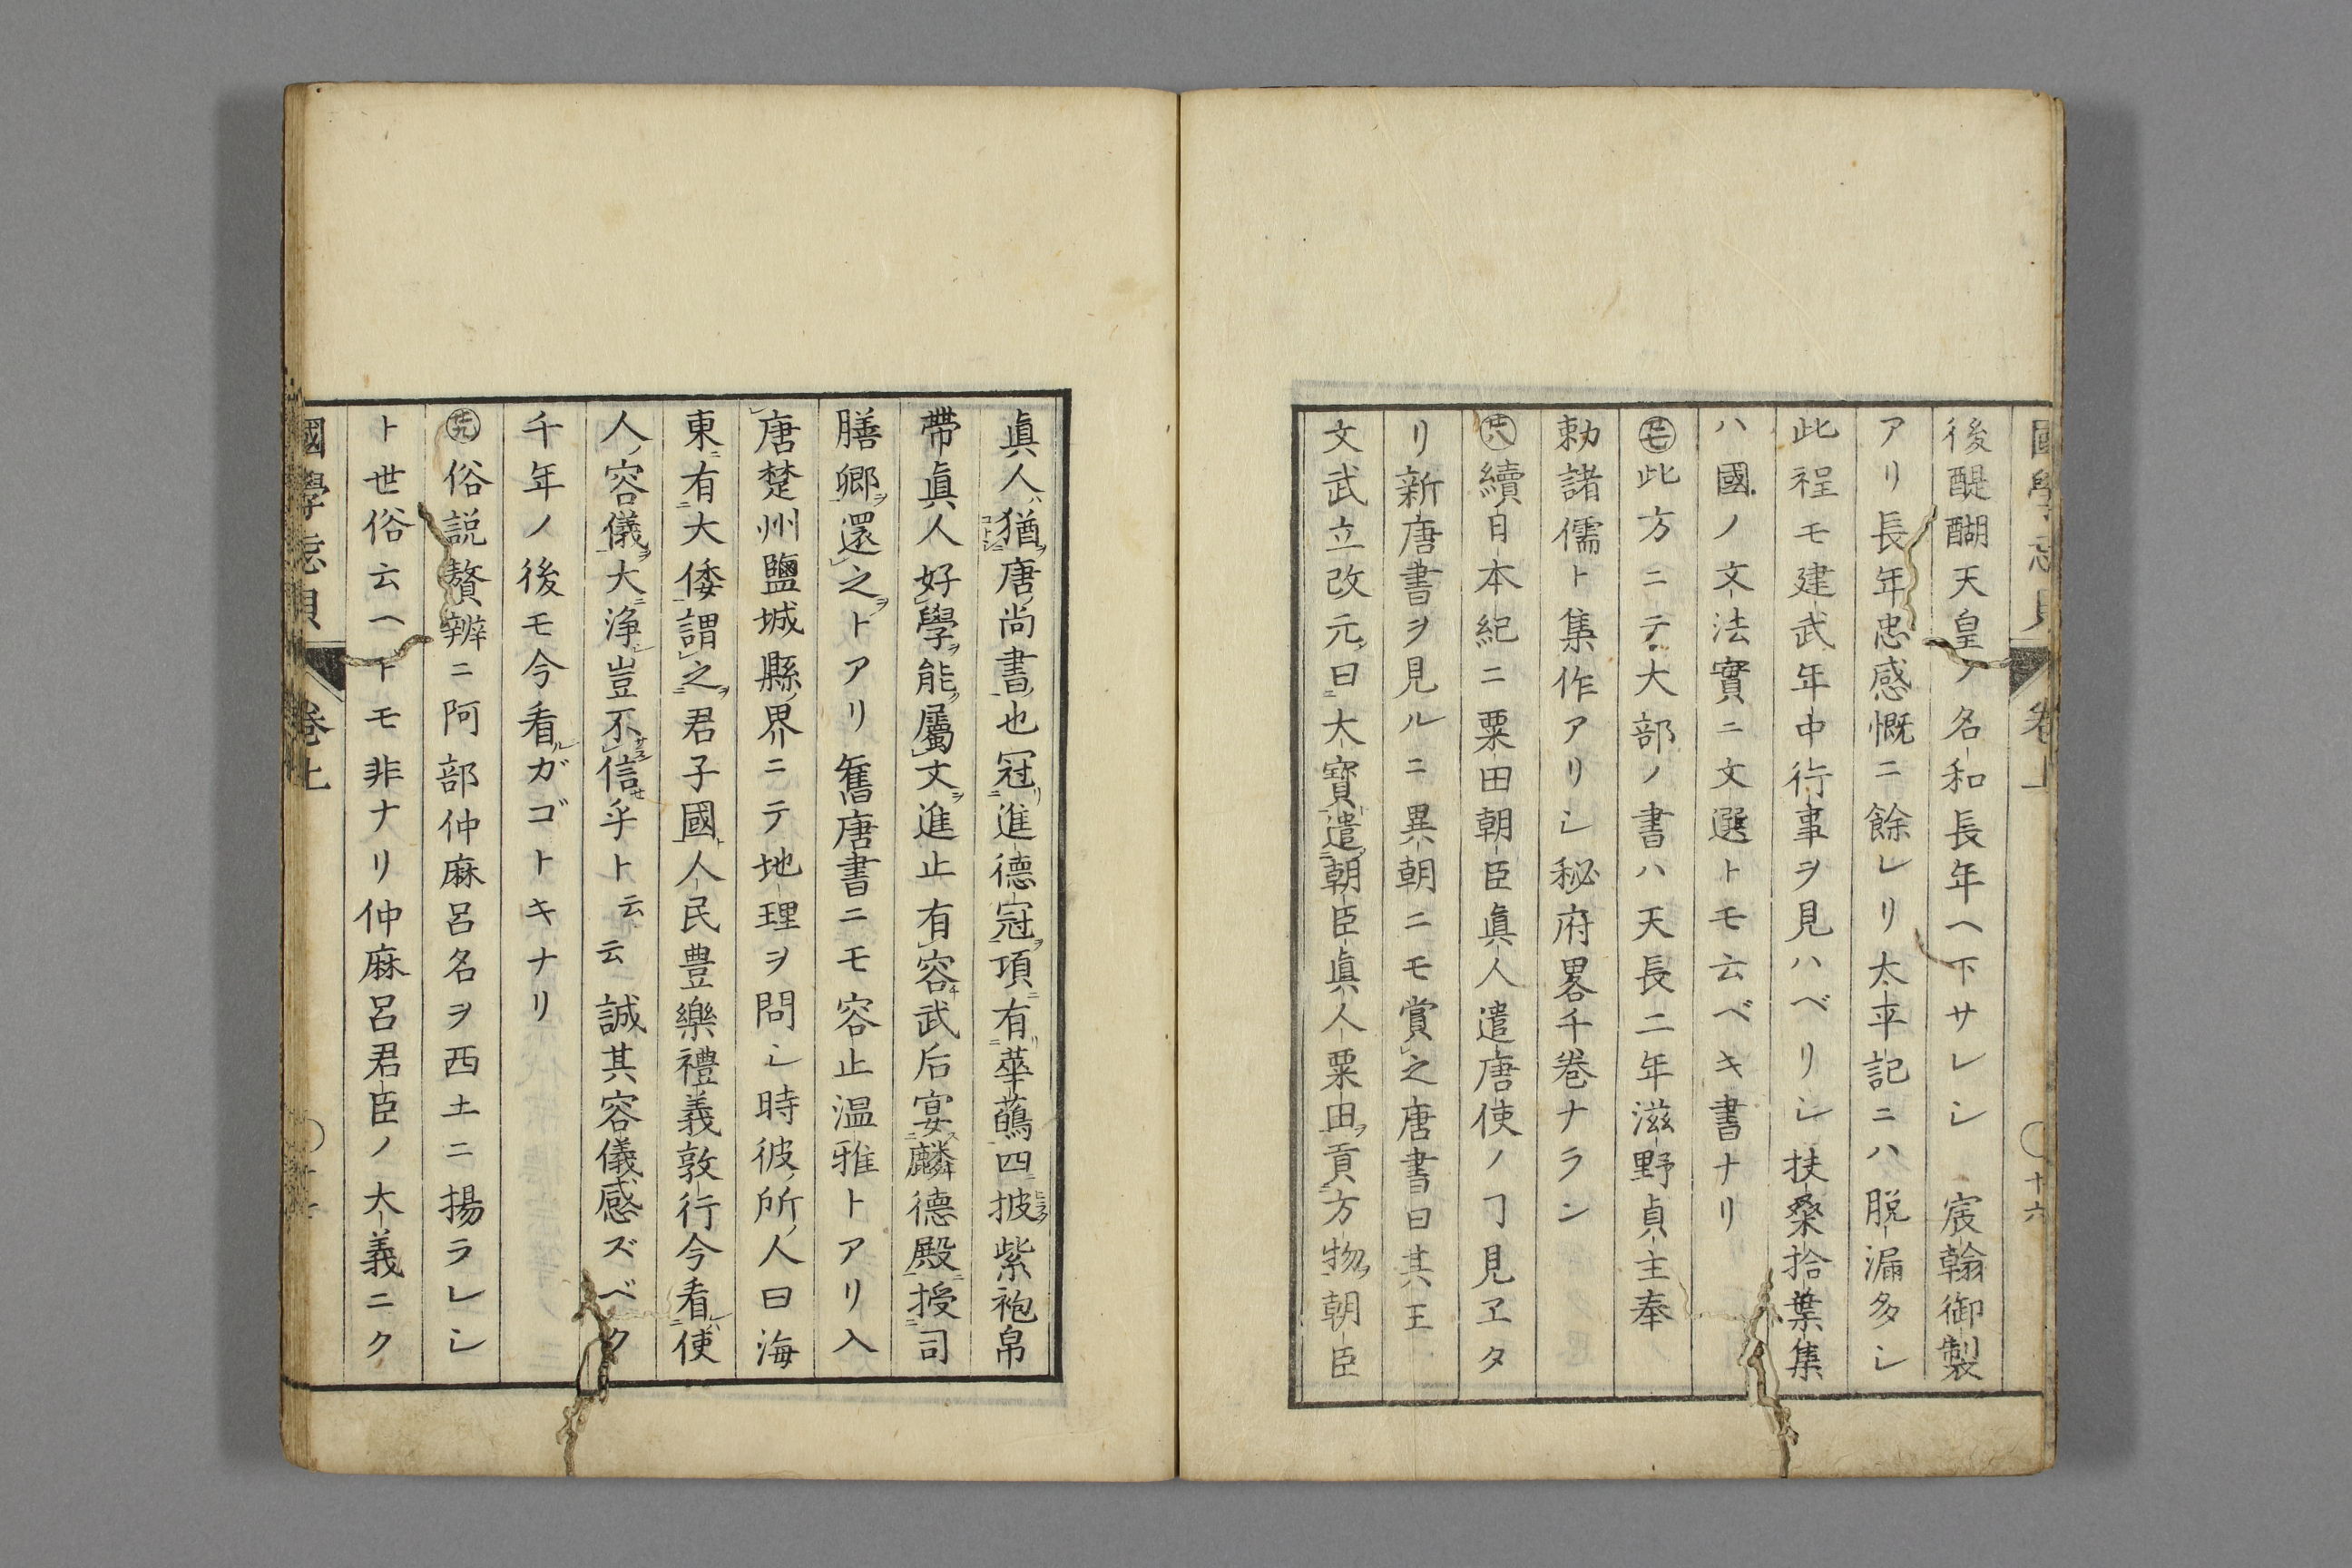 後醍醐天皇ノ名和長年ヘ下サレシ　宸翰御製
アリ長年忠感慨ニ餘レリ太平記ニハ脱漏多シ
此程モ建武年中行事ヲ見ハベリシ扶桑拾葉集
ハ國ノ文法實ニ文選トモ云ベキ書ナリ
㊆此方ニテ大部ノ書ハ天長二年滋野貞主奉
勅諸儒ト集作アリシ秘府畧千巻ナラン
續日本紀ニ粟田朝臣眞人遣唐使ノヿ見ヱタ
リ新唐書ヲ見ルニ異朝ニモ賞之唐書曰其王
文武立改元曰大寶遣朝臣眞人粟田貢方物朝臣
眞人猶唐尚書也冠進德冠項有華蘤四披紫袍帛
帶眞人好學能屬文進止有容武后宴麟德殿授司
膳卿還之トアリ舊唐書ニモ容止温雅トアリ入
唐楚州鹽城縣界ニテ地理ヲ問シ時彼所人曰海
東有大倭謂之君子國人民豊樂禮義敦行今看使
人容儀大浄豈不信乎ト云云誠其容儀感ズベク
千年ノ後モ今看ガゴトキナリ
俗説贅辨ニ阿部仲麻呂名ヲ西土ニ揚ラレシ
ト世俗云ヘトモ非ナリ仲麻呂君臣ノ大義ニク
國學忘貝　巻上